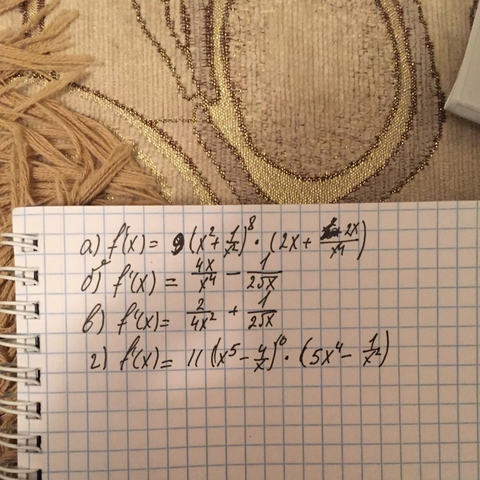 а) f'(x) = 9(x² + 1/x²)⁸ · (2x + 2x/x⁴)
б) f'(x) = 4x/x⁴ − 1/2√x
в) f'(x) = 2/4x² + 1/2√x
г) f'(x) = 11(x⁵ − 4/x)¹⁰ · (5x⁴ − 1/x²)